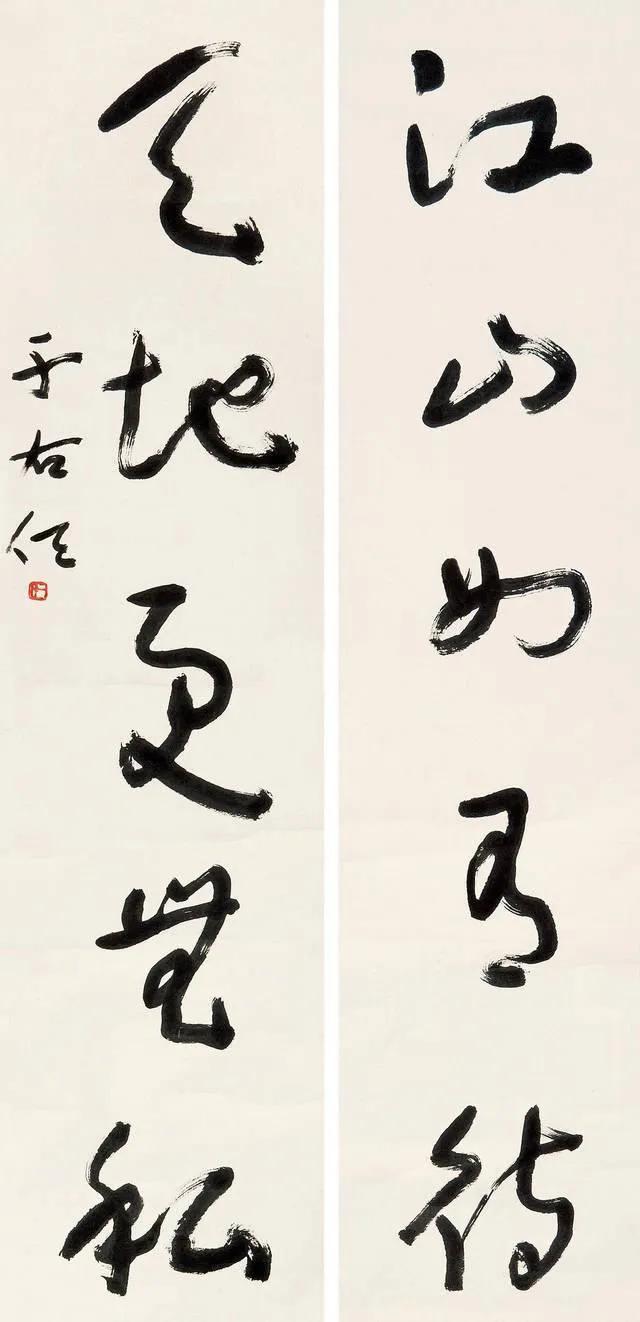 江山如有待
天地更無私
于右任